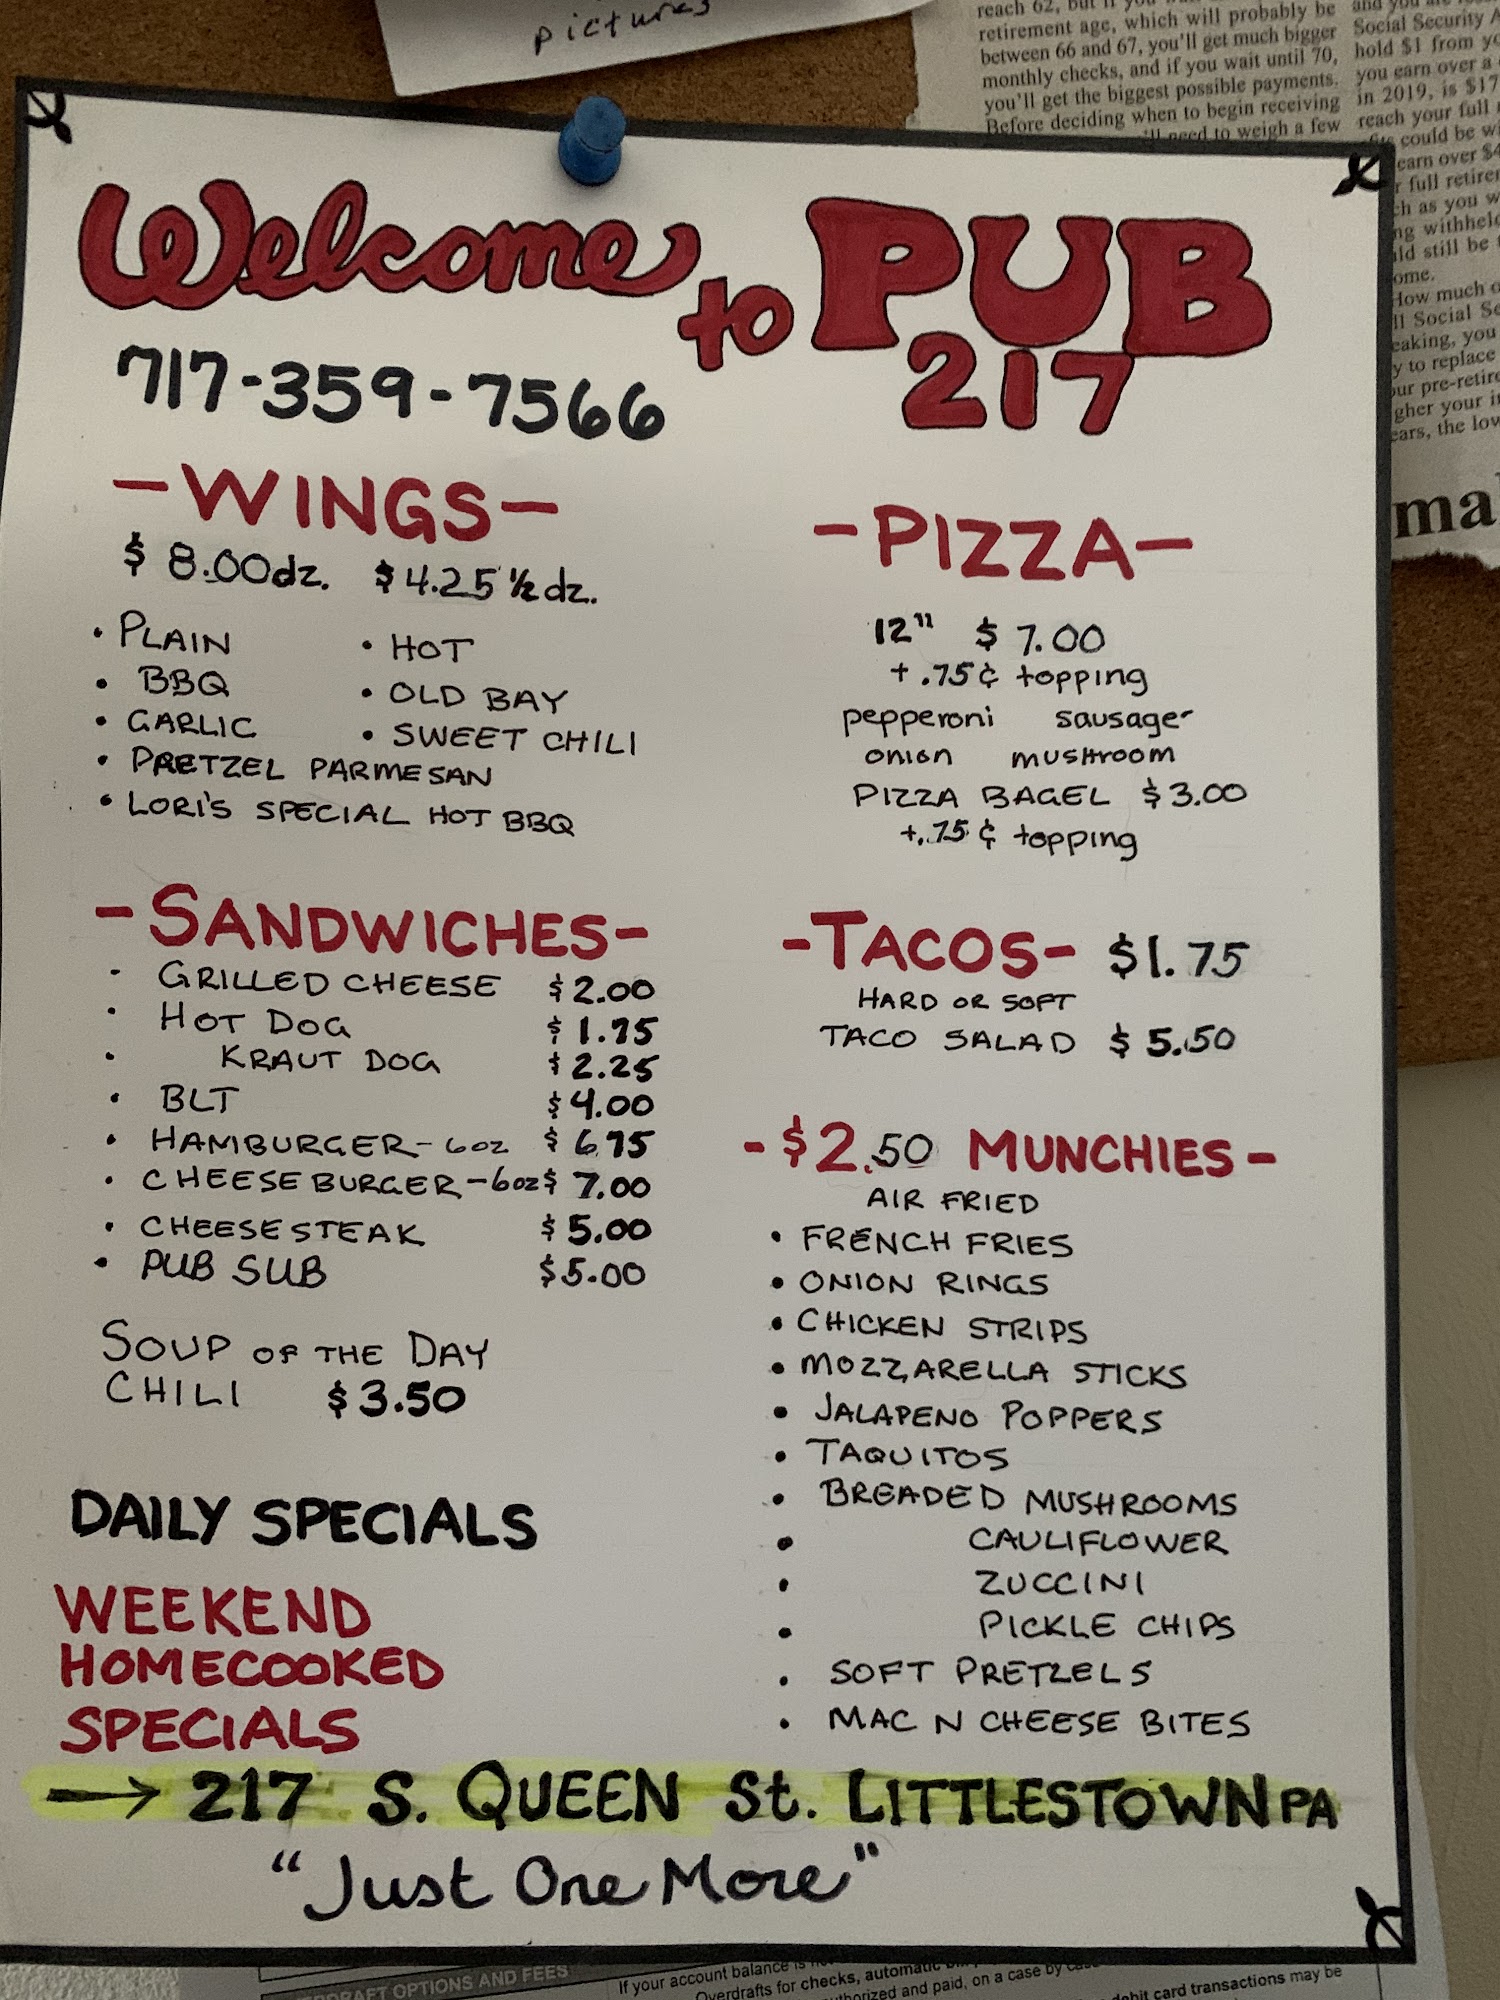 pictures
reach 62, but if you
retirement age, which will probably be
between 66 and 67, you'll get much bigger
monthly checks, and if you wait until 70,
you'll get the biggest possible payments.
Before deciding when to begin receiving
need to weigh a few
and you
Social Security
hold $1 from
you earn over a
in 2019, is $17
reach your full
could be
earn over $4
full
as you
withheld
still be
How much
Social
you
to replace
your
the low
ma
Welcome to PUB
217
717-359-7566
-WINGS-
$8.00dz. $4.25 ½ dz.
• PLAIN • HOT
• BBQ • OLD BAY
• GARLIC • SWEET CHILI
• PRETZEL PARMESAN
• LORI'S SPECIAL HOT BBQ
-PIZZA-
12" $7.00
+.75¢ topping
pepperoni sausage
onion mushroom
PIZZA BAGEL $3.00
+.75¢ topping
-SANDWICHES-
• GRILLED CHEESE $2.00
• HOT DOG $1.75
• KRAUT DOG $2.25
• BLT $4.00
• HAMBURGER-6oz $6.75
• CHEESEBURGER-6oz $7.00
• CHEESESTEAK $5.00
• PUB SUB $5.00
SOUP OF THE DAY
CHILI $3.50
-TACOS- $1.75
HARD OR SOFT
TACO SALAD $5.50
-$2.50 MUNCHIES-
AIR FRIED
• FRENCH FRIES
• ONION RINGS
• CHICKEN STRIPS
• MOZZARELLA STICKS
• JALAPENO POPPERS
• TAQUITOS
• BREADED MUSHROOMS
• CAULIFLOWER
• ZUCCINI
• PICKLE CHIPS
• SOFT PRETZELS
• MAC N CHEESE BITES
DAILY SPECIALS
WEEKEND
HOMECOOKED
SPECIALS
→ 217 S. QUEEN St. LITTLESTOWN PA
"Just One More"
OPTIONS AND FEES
If your account balance is
Overdrafts for checks, automatic
and paid, on a case by
debit card transactions may be